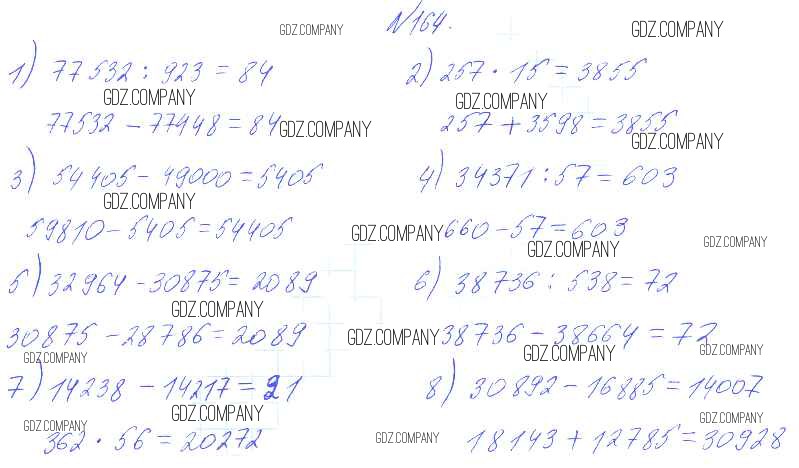 №164.
GDZ.COMPANY GDZ.COMPANY
1) 77532 : 923 = 84 2) 257 · 15 = 3855
GDZ.COMPANY GDZ.COMPANY
77532 - 77448 = 84 GDZ.COMPANY 257 + 3598 = 3855
GDZ.COMPANY
3) 54405 - 49000 = 5405 4) 34371 : 57 = 603
GDZ.COMPANY
59810 - 5405 = 54405 GDZ.COMPANY 660 - 57 = 603
GDZ.COMPANY GDZ.COMPANY
5) 32964 - 30875 = 2089 6) 38736 : 538 = 72
GDZ.COMPANY
30875 - 28786 = 2089 GDZ.COMPANY 38736 - 38664 = 72
GDZ.COMPANY GDZ.COMPANY GDZ.COMPANY
7) 14238 - 14217 = 21 8) 30892 - 16885 = 14007
GDZ.COMPANY GDZ.COMPANY GDZ.COMPANY
362 · 56 = 20272 GDZ.COMPANY 18143 + 12785 = 30928